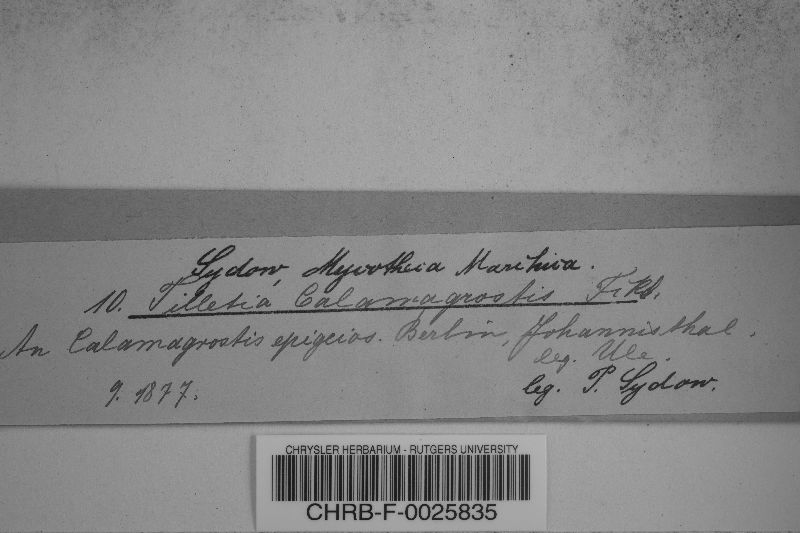 Sydow, Mycotheca Marchica.
10. Tilletia Calamagrostis Fckl.
An Calamagrostis epigeios. Berlin, Johannisthal.
leg. Ule.
9. 1877.
leg. P. Sydow.
CHRYSLER HERBARIUM - RUTGERS UNIVERSITY
CHRB-F-0025835